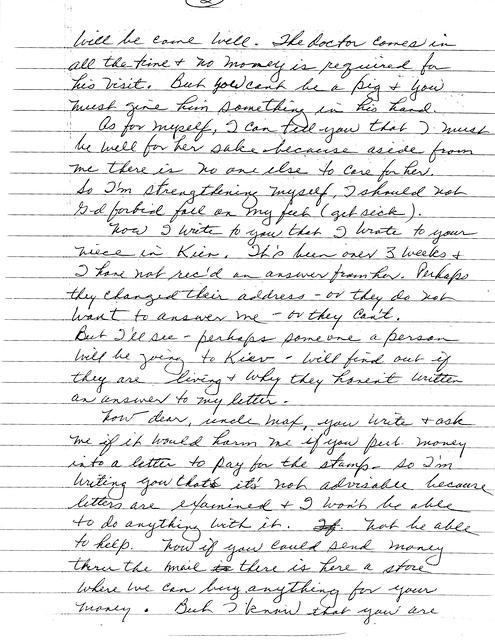 2
will be come well. The doctor comes in
all the time & no money is required for
his visit. But you cant be a pig & you
must give him something in his hand.
As for myself, I can tell you that I must
be well for her sake because aside from
me there is no one else to care for her.
So I'm strengthening myself, I should not
G-d forbid fall on my feet (get sick).
Now I write to you that I wrote to your
niece in Kiev. It's been over 3 weeks &
I have not rec'd an answer from her. Perhaps
they changed their address - or they do not
want to answer me - or they can't.
But I'll see - perhaps someone a person
will be going to Kiev - will find out if
they are living & why they haven't written
an answer to my letter.
Now dear, uncle Max, you write & ask
me if it would harm me if you put money
into a letter to pay for the stamp - so I'm
writing you that it's not advisable because
letters are examined & I won't be able
to do anything with it. Not be able
to help. Now if you could send money
thru the mail there is here a store
where we can buy anything for your
money. But I know that you are